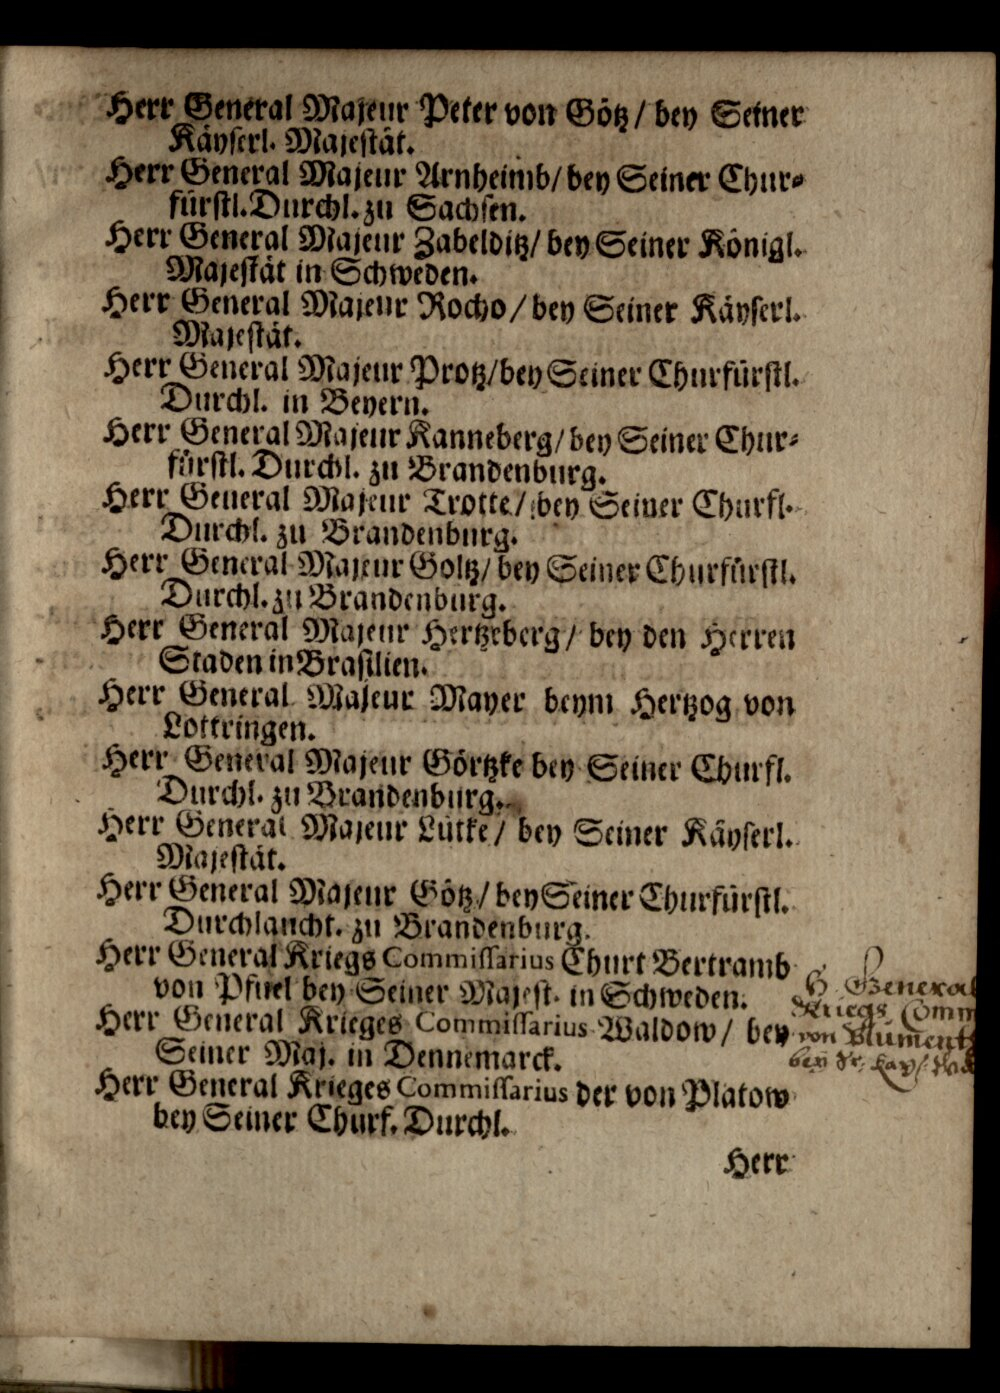 Herr General Majeur Peter von Götz / bey Seiner
Käyserl. Majestät.
Herr General Majeur Arnheimb/ bey Seiner Chur-
fürstl. Durchl. zu Sachsen.
Herr General Majeur Zabelditz/ bey Seiner Königl.
Majestät in Schweden.
Herr General Majeur Rocho/ bey Seiner Käyserl.
Majestät.
Herr General Majeur Protz/bey Seiner Churfürstl.
Durchl. in Beyern.
Herr General Majeur Kanneberg/ bey Seiner Chur-
fürstl. Durchl. zu Brandenburg.
Herr General Majeur Trotte/ bey Seiner Churfl.
Durchl. zu Brandenburg.
Herr General Majeur Goltz/ bey Seiner Churfürstl.
Durchl. zu Brandenburg.
Herr General Majeur Hertzeberg/ bey den Herren
Staden in Brasilien.
Herr General Majeur Mayer beym Hertzog von
Lottringen.
Herr General Majeur Görtzke bey Seiner Churfl.
Durchl. zu Brandenburg.
Herr General Majeur Lütke/ bey Seiner Käyserl.
Majestät.
Herr General Majeur Götz/ bey Seiner Churfürstl.
Durchlaucht. zu Brandenburg.
Herr General Kriegs Commissarius Churt Bertramb
von Pfuel bey Seiner Majest. in Schweden.
Herr General Krieges Commissarius Waldow/ bey
Seiner Maj. in Dennemarck.
Herr General Krieges Commissarius der von Platow
bey Seiner Churf. Durchl.
Herr
H. General
Kriegs Comm
von Blument
bey Sr. Kay/